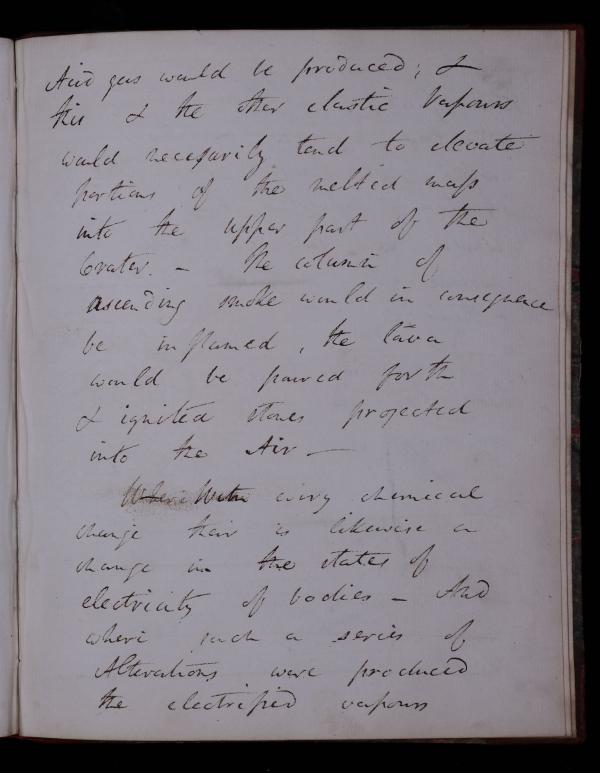 Acid gas would be produced; &
this & the other elastic Vapours
would necessarily tend to elevate
portions of the melted mass
into the upper part of the
Crater. — The column of
ascending smoke would in consequence
be inflamed, the lava
would be poured forth
& ignited stones projected
into the Air —
With every chemical
change their is likewise a
change in the states of
electricity of bodies — And
where such a series of
Alterations were produced
the electrified vapours